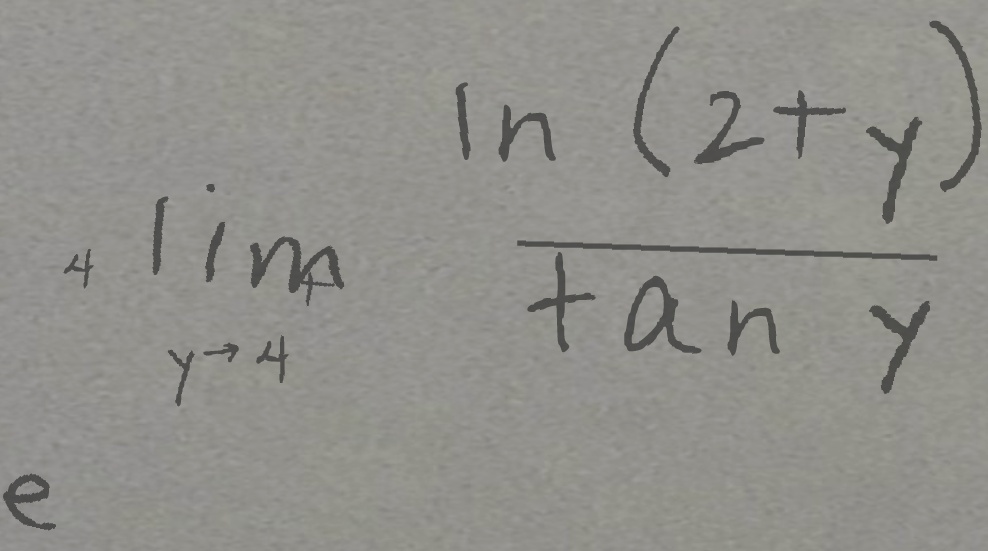 e^{4 \lim_{y \to 4} \frac{\ln (2+y)}{\tan y}}